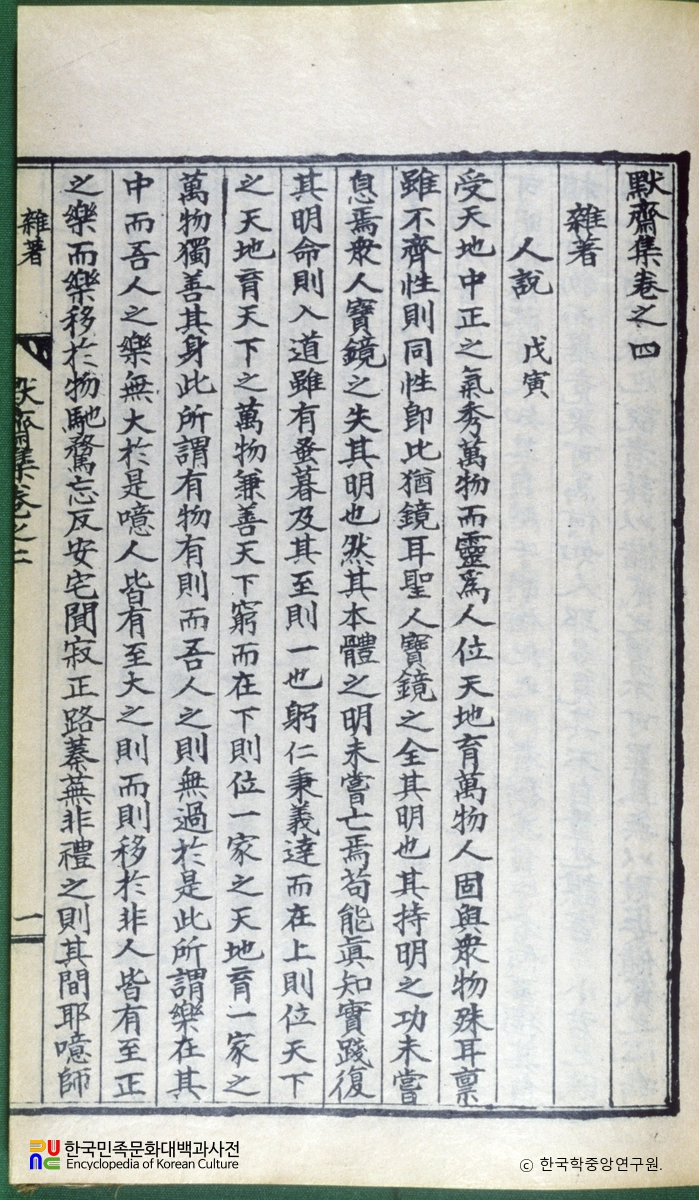 默齋集卷之四
雜著
人說 戊寅
受天地中正之氣秀萬物而靈爲人位天地育萬物人固與衆物殊耳稟
雖不齊性則同性卽比猶鏡耳聖人寶鏡之全其明也其持明之功未嘗
息焉衆人寶鏡之失其明也然其本體之明未嘗亡焉苟能眞知實踐復
其明命則入道雖有蚤暮及其至則一也躬仁秉義達而在上則位天下
之天地育天下之萬物兼善天下窮而在下則位一家之天地育一家之
萬物獨善其身此所謂有物有則而吾人之則無過於是此所謂樂在其
中而吾人之樂無大於是噫人皆有至大之則而則移於非人皆有至正
之樂而樂移於物馳騖忘反安宅闃寂正路蓁蕪非禮之則其間耶噫師
雜著
默齋集卷之二
一
한국민족문화대백과사전
Encyclopedia of Korean Culture
ⓒ 한국학중앙연구원.